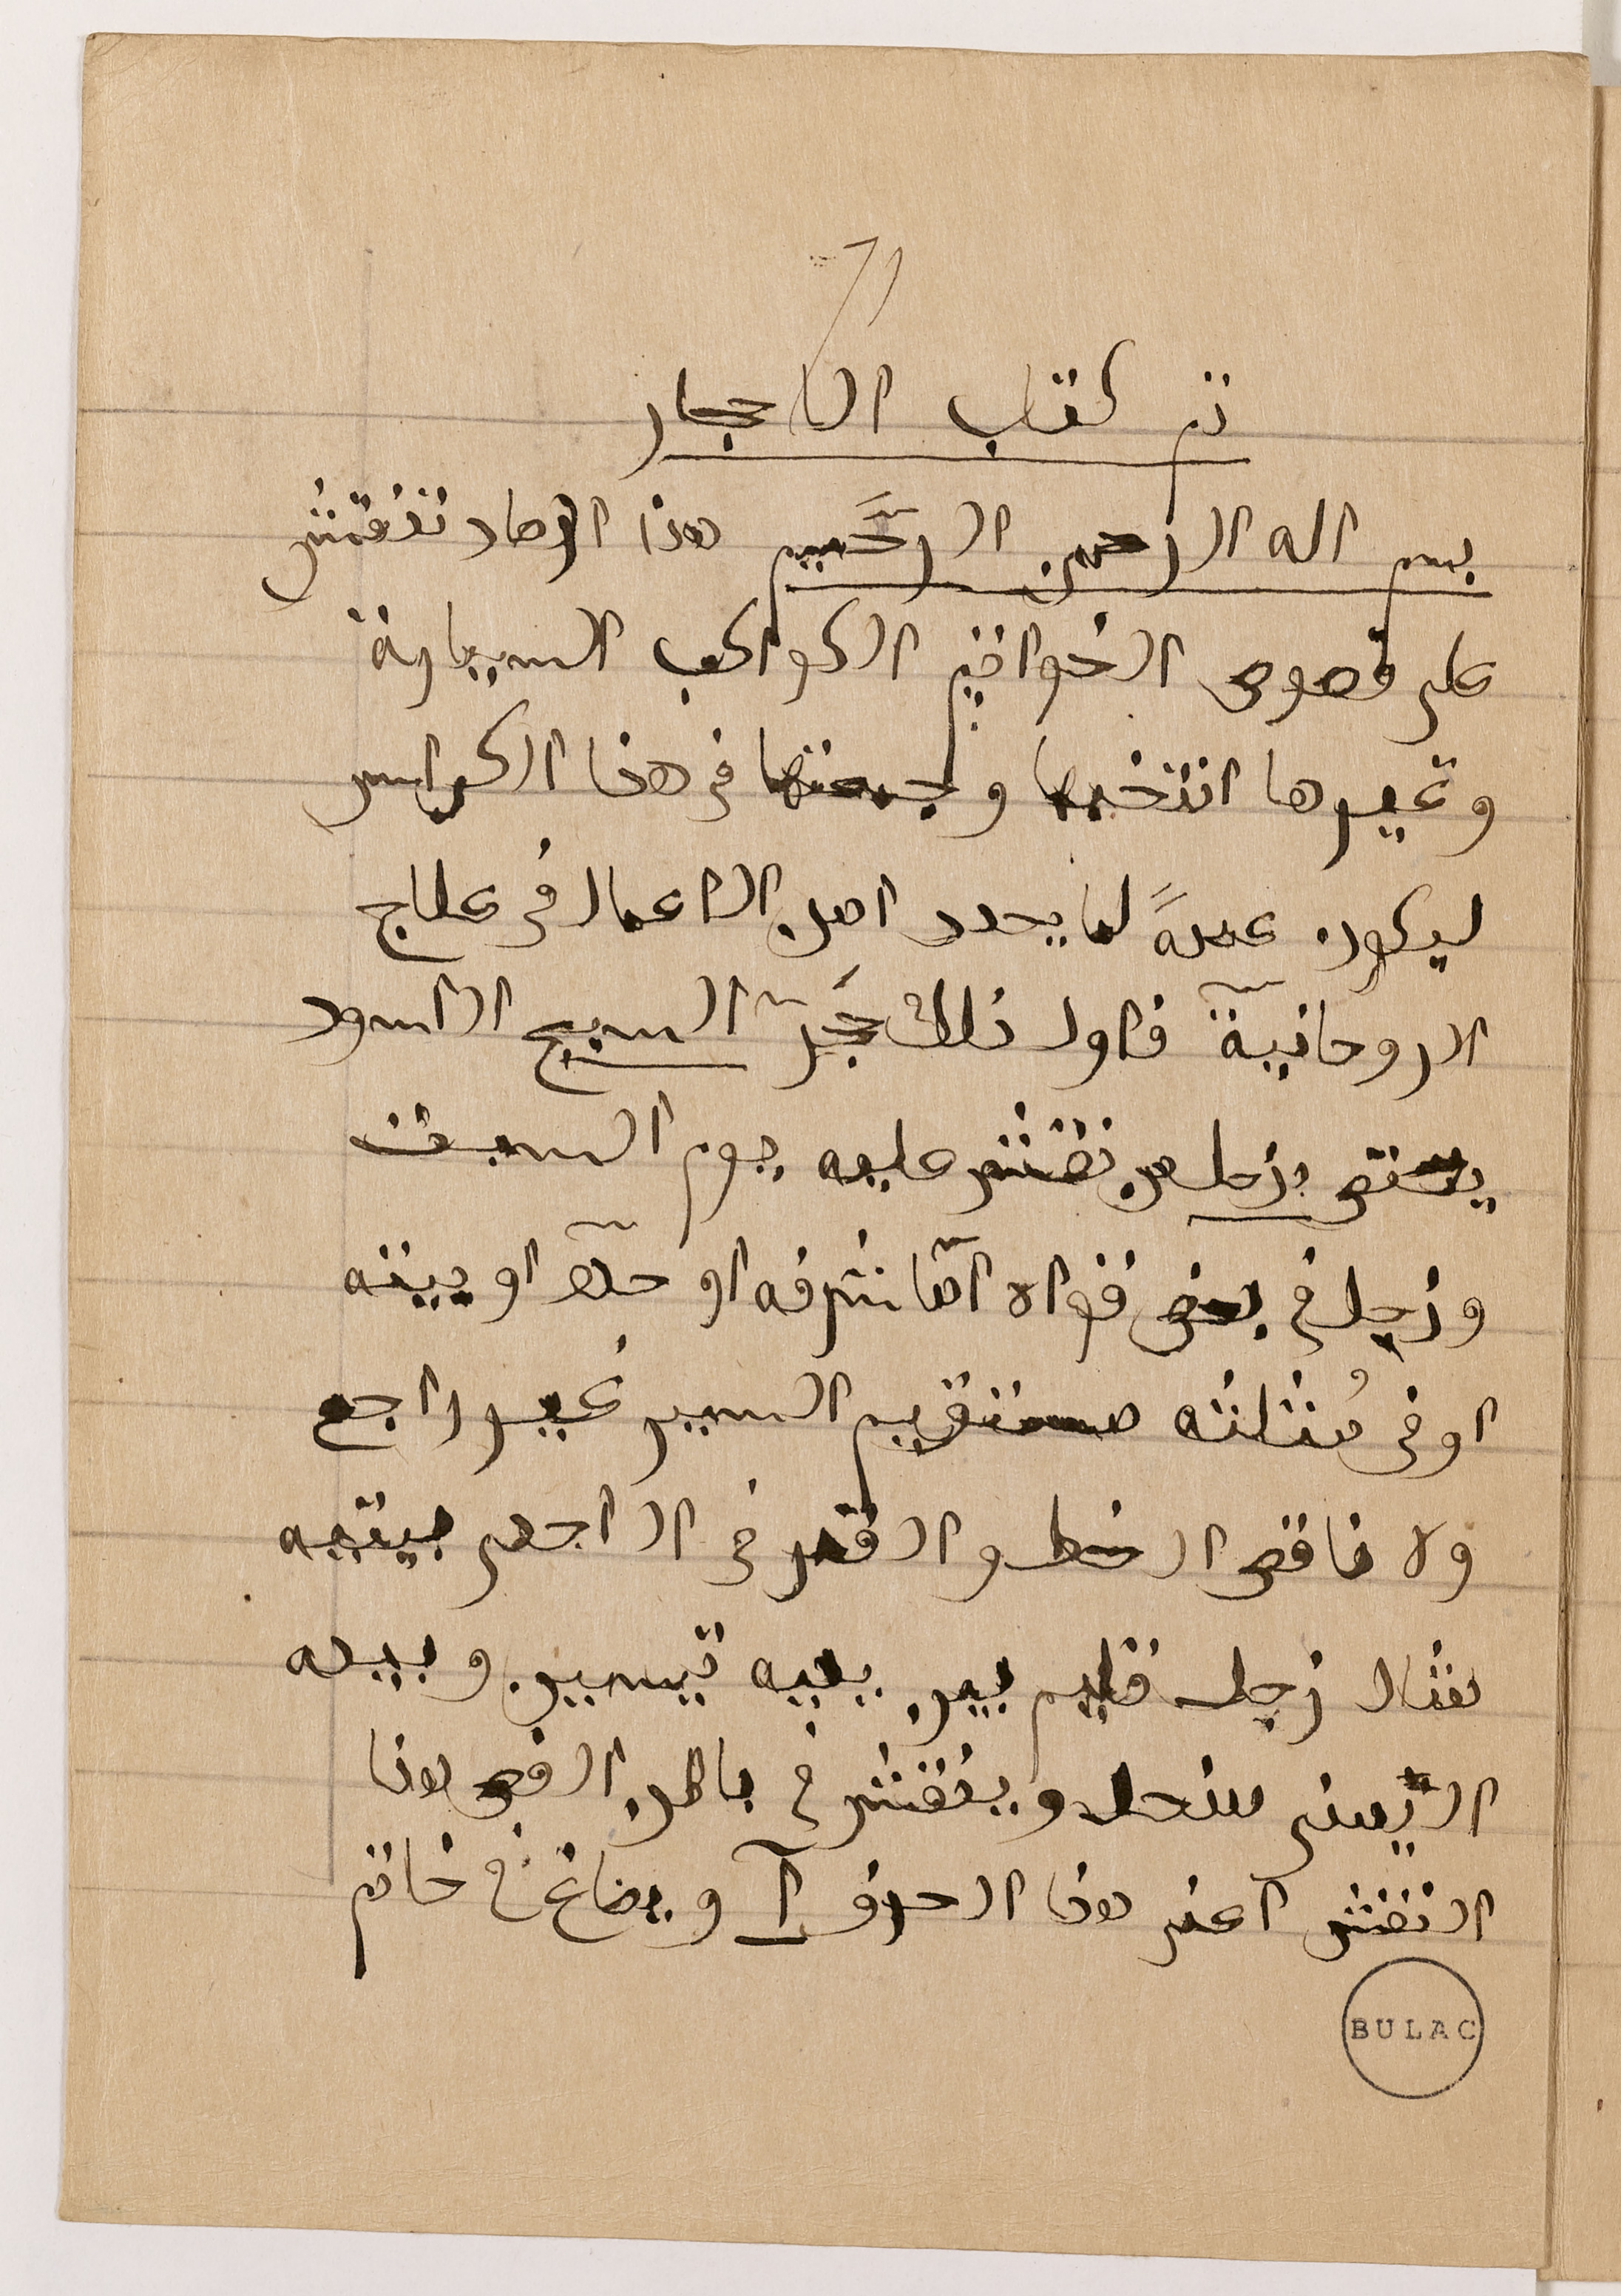 تم كتاب الاحجار
بسم اله الرحمن الرَّحيم هذا ارصاد تنقش
على فصوص الخواتيم الكواكب السيارة
وغيرها انتخبها وجمعتها في هذا الكراس
ليكون عمدةً لما يحدد من الاعمال في علاج
الروحانيّة فاول ذلك حَجر السبج الاسود
يختص بزحل من نقش عليه يوم السبت
وزحل في بعض قواه امّا شرفه او حدّه او بيته
او في مُثلثته مستقيم السير غير راجع
ولا ناقص الخط والقمر في الاجمع بيته
مثال رجل قايم بين يديه تيسين وبيده
اليمنى منجل وينقش في باطن الفص هذا
النقش اعني هذا الحرف آ ويصاغ في خاتم
BULAC